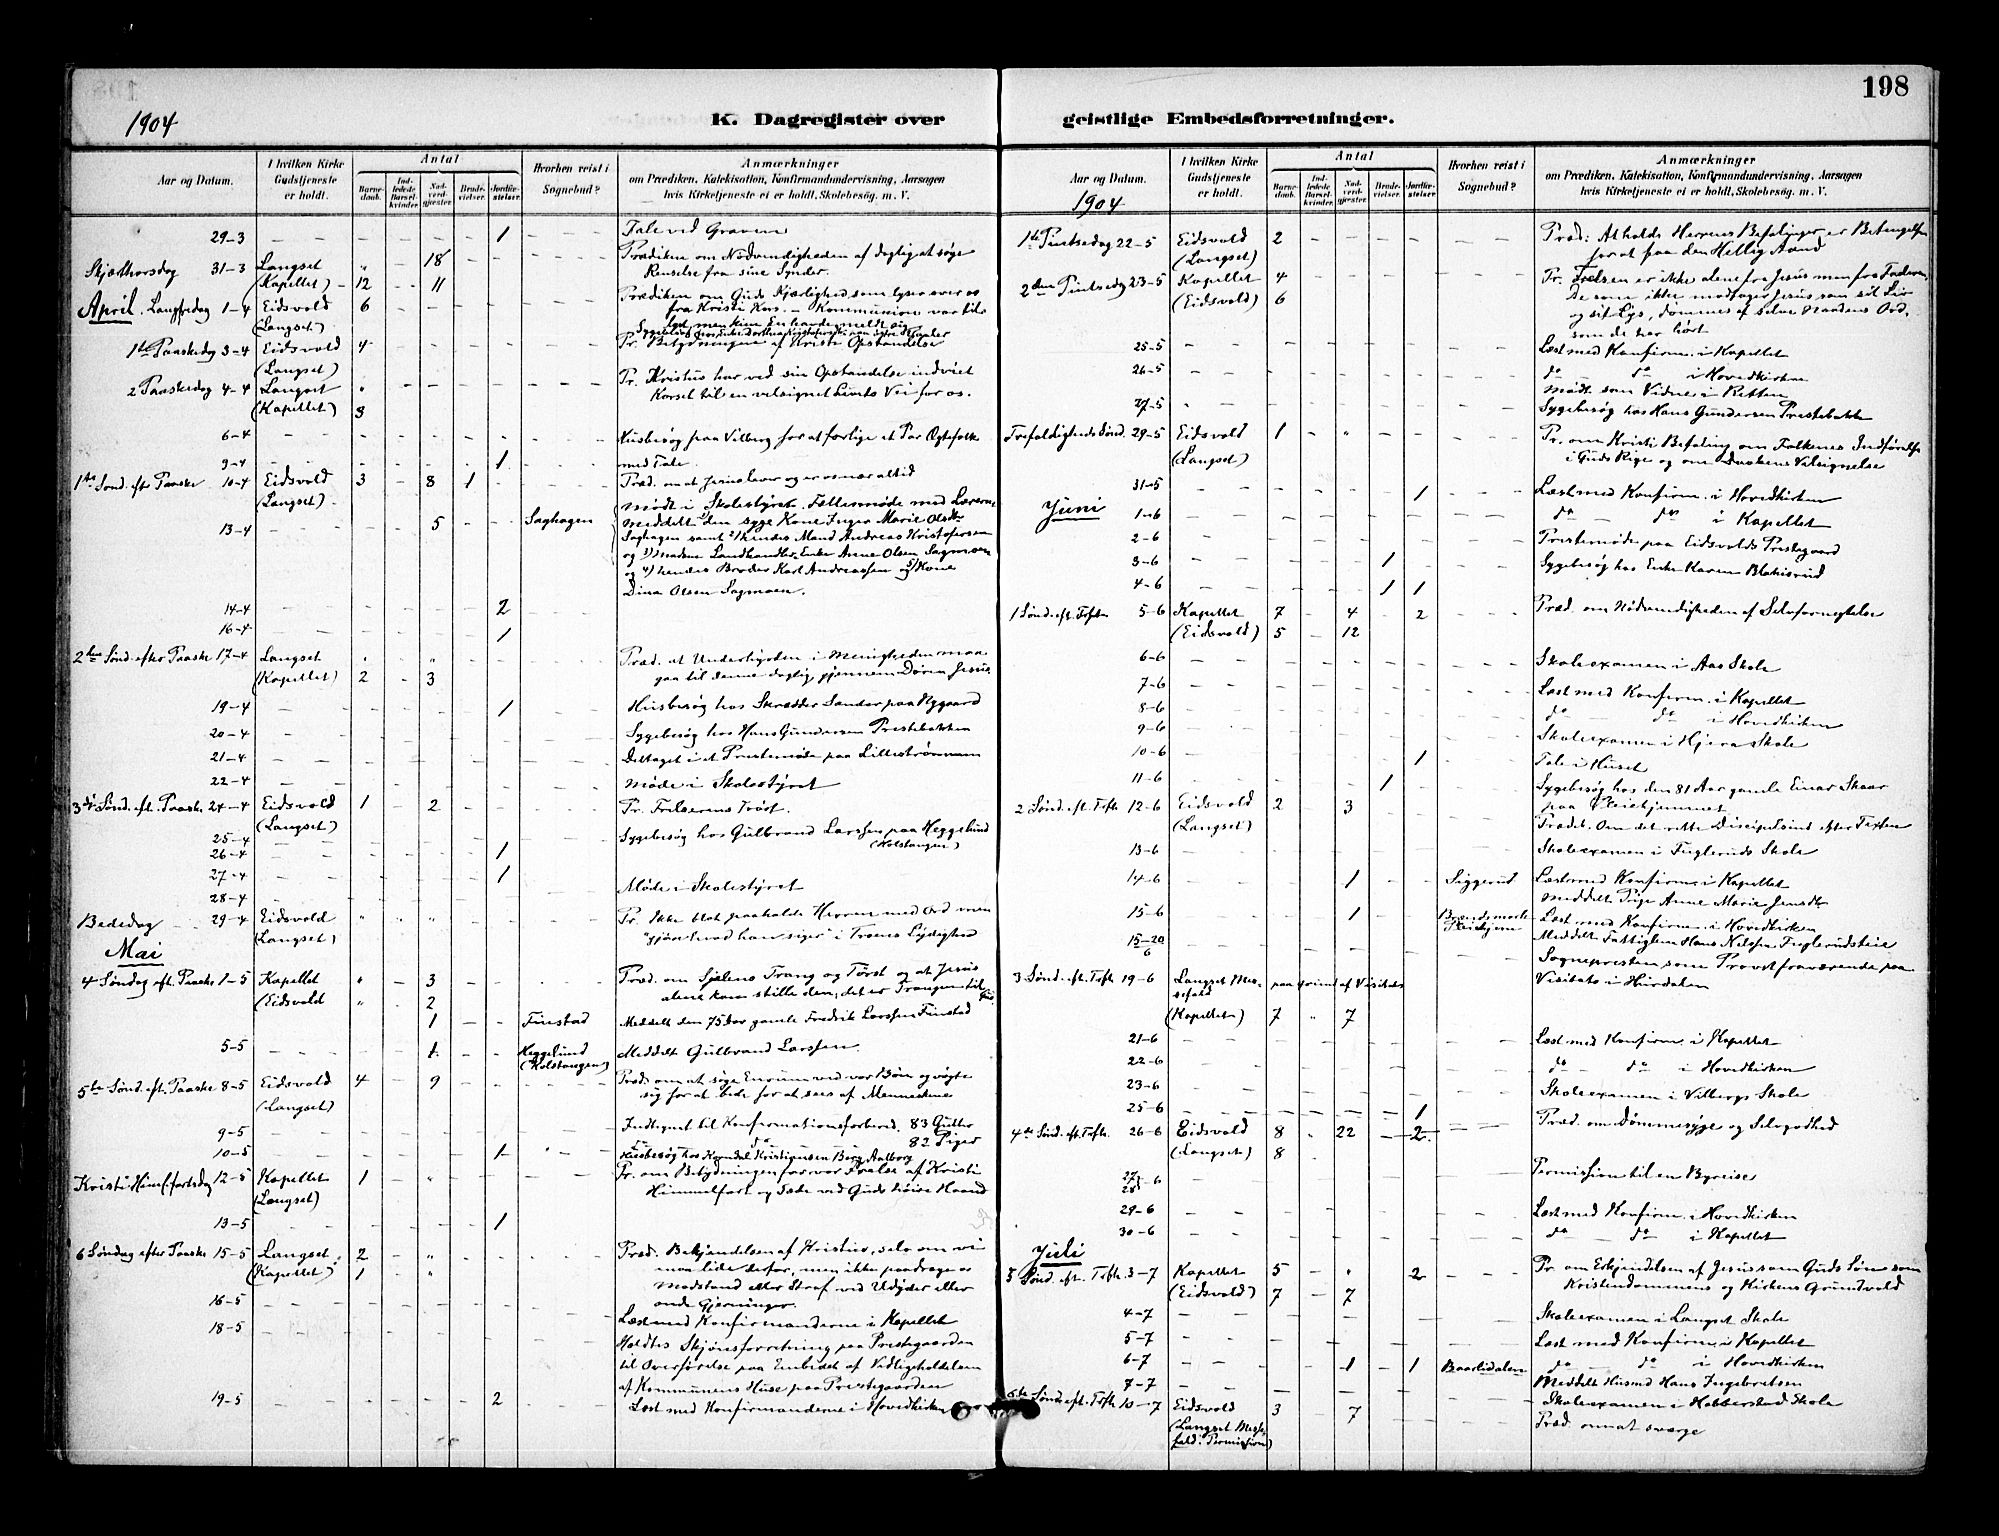 198
1904
K. Dagregister over geistlige Embedsforretninger.
Aar og Datum.
I hvilken Kirke Gudstjeneste er holdt.
Antal
Barne-daab.
Ind-ledede Barsel-kvinder.
Nad-verd-gjæster.
Brude-vielser.
Jordfæ-stelser.
Hvorhen reist i Sognebud?
Anmærkninger
om Prædiken, Katekisation, Konfirmandundervisning, Aarsagen
hvis Kirketjeneste ei er holdt, Skolebesøg. m. V.
29-3 1 Tale ved Graven
Skjærthorsdag 31-3 Langset " 18 Prædiken om Nødvendigheden af daglig at søge
(Kapellet) 12 11 Renselse fra sine Synder.
April. Langfredag 1-4 Eidsvold 6 Prædiken om Guds Kjærlighed som lyser over os
(Langset) fra Kristi Kors. – Kommunion var til-
1ste Paaskedag 3-4 Eidsvold 4 Pr. Betydningen af Kristi Opstandelse
(Langset)
2 Paaskedag 4-4 Langset " Pr. Kristus har ved sin Opstandelse indviet
(Kapellet) 3 Korset til en velsignet Livets Vei for os.
6-4 Husbesøg paa Vilberg for at forlige et Par Ægtefolk
9-4 1 med Tale.
1ste Sønd. eft. Paaske 10-4 Eidsvold 3 8 1 Præd. om at Jesus lever og er os nær altid
(Langset) Mødt i Skolestyret. Fællesmøde med Lærerne
13-4 5 Saghagen Meddelt 1) den syge Kone Inger Marie Olsdtr
Saghagen samt 2) hendes Mand Andreas Kristofersen
og 3) Landhandler Enke Anne Olsen Sagmoen
og 4) hendes Broder Karl Andreassen og 5) Kone
Dina Olsen Sagmoen.
14-4 2
16-4 1
2den Sønd. efter Paaske 17-4 Langset " " Præd. at Underhyrden i Menigheden maa
(Kapellet) 2 3 gaa til denne daglig gjennem Døren Jesus.
19-4 1 Husbesøg hos Skrædder Sander paa Nygaard
20-4 Sygebesøg hos Hans Gundersen Prestebakken
21-4 Deltaget i et Prestemøde paa Lillestrømmen
22-4 Møde i Skolestyret
3die Sønd. eft. Paaske 24-4 Eidsvold 1 2 Pr. Frelserens Trøst.
(Langset)
25-4 Sygebesøg hos Gulbrand Larssen paa Heggelund
26-4 1 (Holstangen)
27-4 1 Møde i Skolestyret
28-4
Bededag 29-4 Eidsvold " " Pr. Ikke blot paakalde Herren med Ord men
(Langset) "gjøre hvad han siger" i Troens Lydighed
Mai
4 Søndag eft. Paaske 1-5 Kapellet " 3 Præd. om Sjelens Trang og Tørst og at Jesus
(Eidsvold " 2 alene kan stille den, det er Trangen til Gud.
1 Finstad Meddelt den 75 Aar gamle Fredrik Larssen Finstad
5-5 1 Heggelund (Holstangen) Meddelt Gulbrand Larssen.
5te Sønd. eft. Paaske 8-5 Eidsvold 4 9 Præd. om at søge Enrum ved vor Bøn og vogte
(Langset) sig for at bede for at sees af Menneskene
9-5 Indtegnet til Konfirmationsforbered. 83 Gutter
do 82 Piger
10-5 1 Husbesøg hos Korndal Kristiansen Berg Aalborg
Kristi Himmelfartsdag 12-5 Kapellet 1 " Pr. om Betydningen for vor Frelse af Kristi
(Langset) Himmelfart og Sæde ved Guds høire Haand
13-5 1
6 Søndag efter Paaske 15-5 Langset 2 " Præd. Bekjendelsen af Kristus, selv om vi
(Kapellet) 1 " maa lide derfor, men ikke paadrage os
Modstand eller Straf ved Udyder eller
16-5 onde Gjerninger.
18-5 Læst med Konfirmanderne i Kapellet
Holdtes Skjønsforretning paa Prestegaarden
til Overførelse paa Embedet af Vedligeholdelsen
af Kommunens Huse paa Prestegaarden
19-5 2 Læst med Konfirmanderne i Hovedkirken
Aar og Datum.
1904
I hvilken Kirke Gudstjeneste er holdt.
Antal
Barne-daab.
Ind-ledede Barsel-kvinder.
Nad-verd-gjæster.
Brude-vielser.
Jordfæ-stelser.
Hvorhen reist i Sognebud?
Anmærkninger
om Prædiken, Katekisation, Konfirmandundervisning, Aarsagen
hvis Kirketjeneste ei er holdt, Skolebesøg. m. V.
1ste Pintsedag 22-5 Eidsvold 2 Præd: At holde Herrens Befalinger er Betingelsen
(Langset) for at faa den Hellig Aand
2den Pintsedag 23-5 Kapellet 4 Pr. Frelsen er ikke alene fra Jesus men fra Faderen.
(Eidsvold) 6 De som ikke modtager Jesus som sit Liv
og sit Lys, dømmes af selve Naadens Ord,
som de har hørt
25-5 Læst med Konfirm. i Kapellet
26-5 do do i Hovedkirken
Mødt som Vidne i Retten
27-5 Sygebesøg hos Hans Gundersen Prestebakke
Trefoldigheds Sønd. 29-5 Eidsvold 1 " Pr. om Kristi Befaling om Folkenes Indførelse
(Langset) i Guds Rige og om Daabens Velsignelse
31-5 1 Læst med Konfirm. i Hovedkirken
Juni 1-6 do do i Kapellet
2-6 Prestemøde paa Eidsvolds Prestegaard
3-6 1 Sygebesøg hos Enke Karen Blakisrud
4-6 1 1
1 Sønd. eft. Trefh. 5-6 Kapellet 7 4 2 Præd. om Nødvendigheden af Selvfornegtelse
(Eidsvold) 5 12
6-6 Skoleexamen i Aas Skole
7-6 Læst med Konfirm. i Kapellet
8-6 do do i Hovedkirken
9-6 Skoleexamen i Hjera Skole
10-6 1 Tale i Huset
11-6 1 Sygebesøg hos den 81 Aar gamle Einar Skaar
2 Sønd. eft. Trefh. 12-6 Eidsvold 2 3 paa Pleiehjemmet
(Langset) Prædik. Om det rette Discipelsind efter Texten
13-6 Skoleexamen i Fuglerud Skole
14-6 1 Siggerud Læst med Konfirm. i Kapellet
Meddelt Pige Anne Marie Jensdtr
15-6 1 Læst med Konfirm. i Hovedkirken
15-20/6 Meddelt Fattiglem Hans Nilsen Fuglerudseie
Sognepresten som Provst fraværende paa
3 Sønd. eft. Trefh. 19-6 Langset Mes-sefald paa Grund af Visitats Visitats i Hurdalen
(Kapellet) 7 " 7
21-6 Læst med Konfirm. i Kapellet
22-6 do do i Hovedkirken
23-6 Skoleexamen i Vilbergs Skole
25-6 1
4de Sønd. eft. Trefh. 26-6 Eidsvold 8 " 22 2 Præd. om Dømmesyge og Selvgodhed
(Langset) 8
27/28-6 Permission til en Byreise
29-6 Læst med Konfirm. i Hovedkirken
30-6 do do i Kapellet
Juli
5 Sønd. eft. Trefh. 3-7 Kapellet 5 " 2 Pr. om Erkjendelsen af Jesus som Guds Søn som
(Eidsvold) 7 7 Kristendommens og Kirkens Grundvold
4-7 Skoleexamen i Langset Skole
5-7 Læst med Konfirm. i Kapellet
6-7 1 1 Baarlidalen do do i Hovedkirken
7-7 Meddelt Husmd Hans Ingebretsen
Skoleexamen i Habberstad Skole
6te Sønd. eft. Trefh. 10-7 Eidsvold 3 7 Præd. om at sværge
(Langset Messe-fald: Permission)